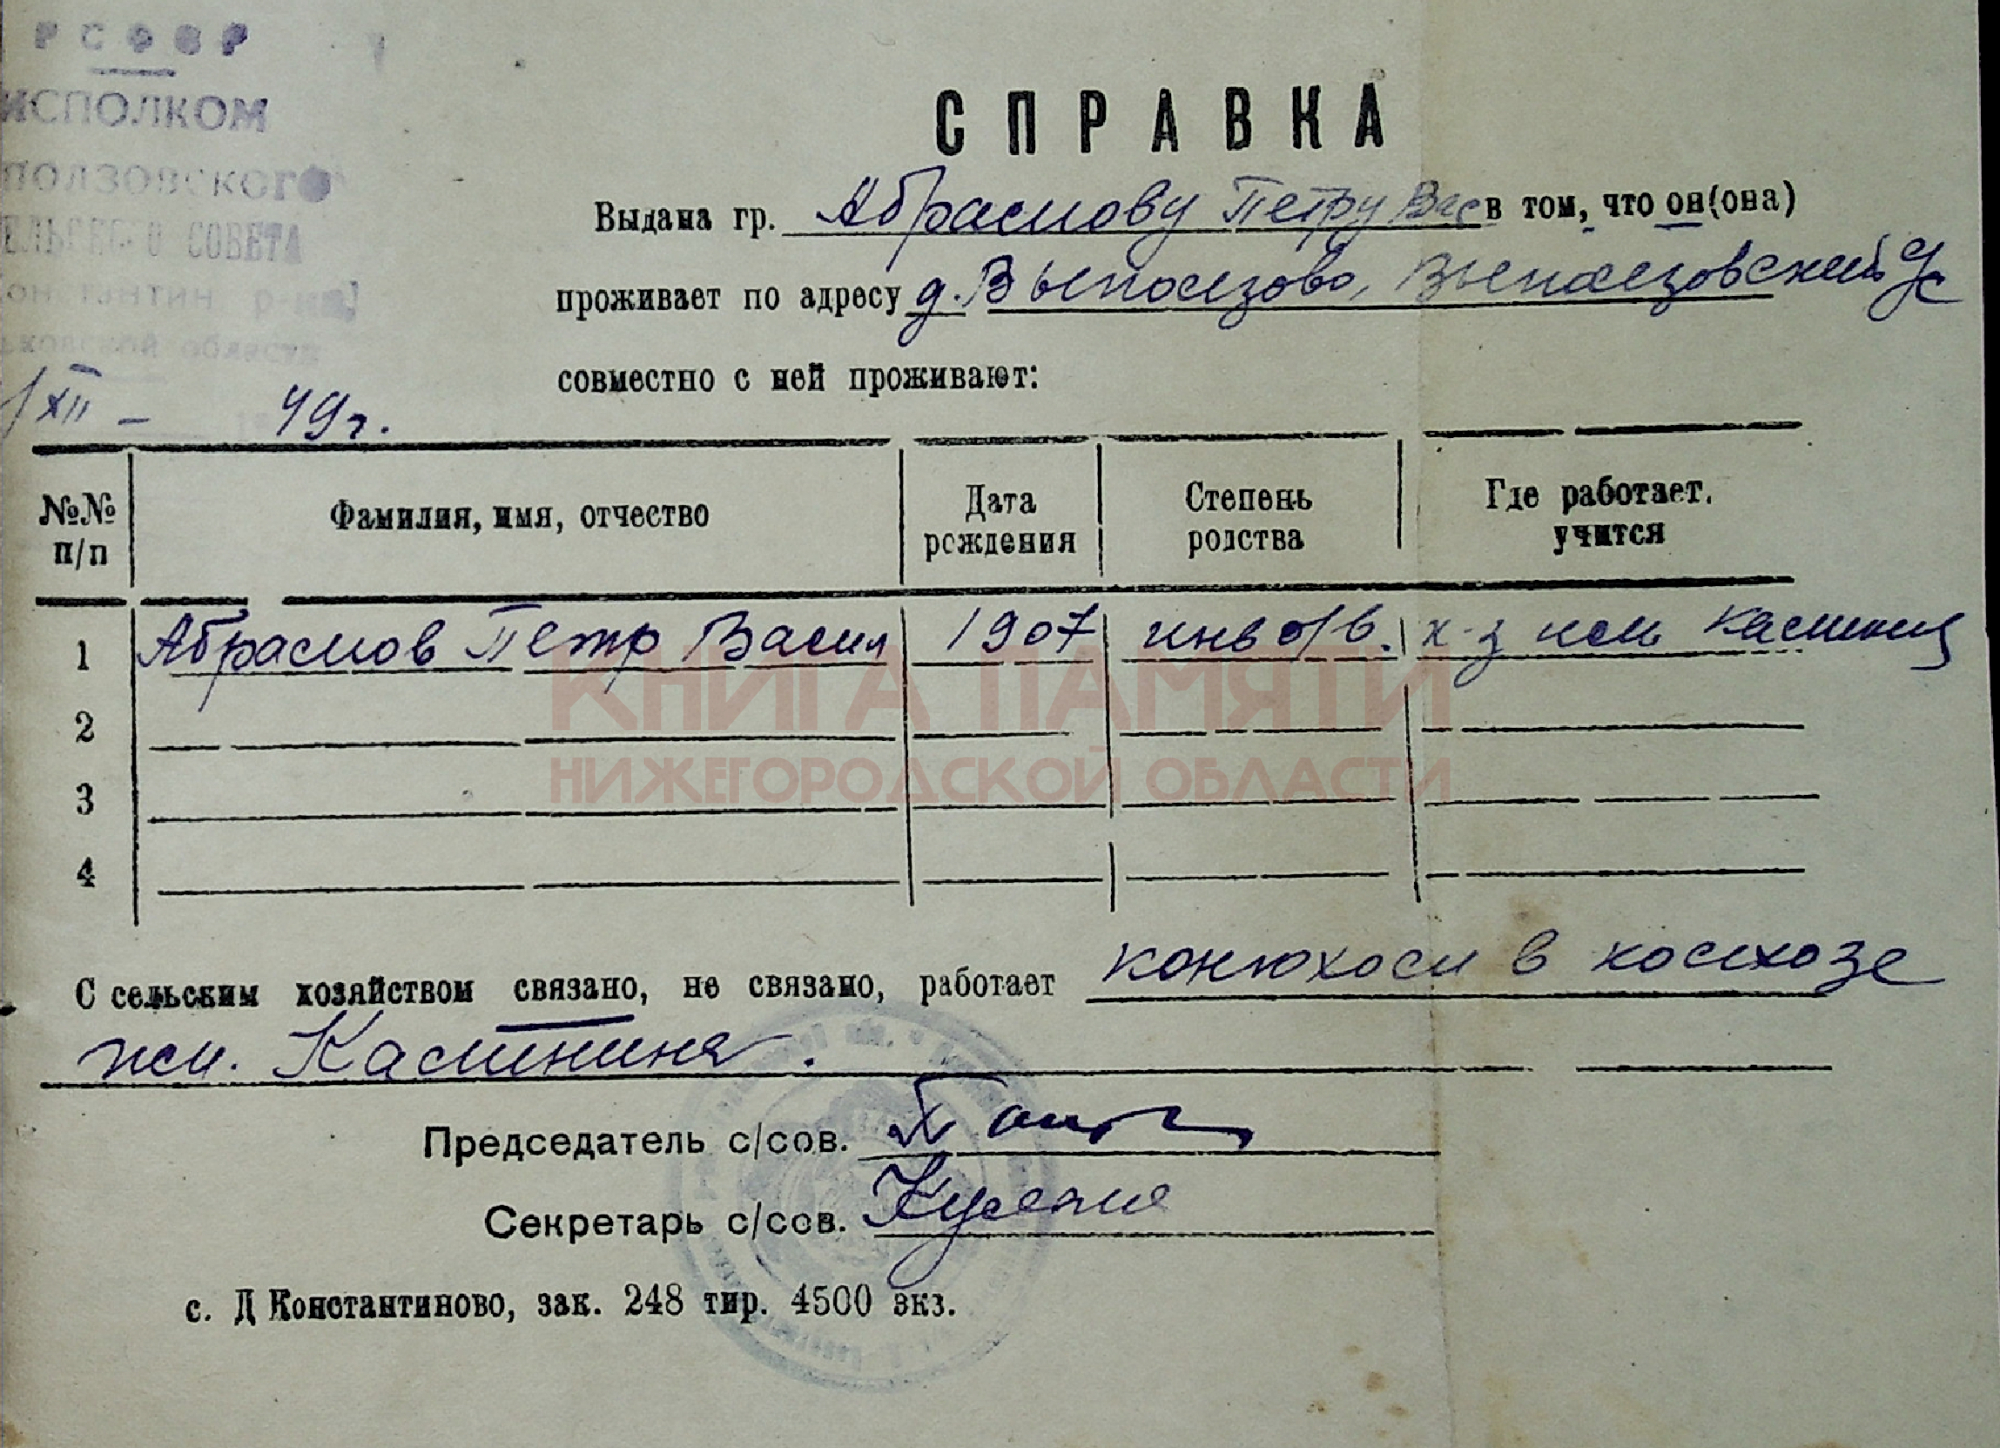 РСФСР
ИСПОЛКОМ
ползовского
ЕЛЬСКОГО СОВЕТА
онстантин р-на
ьковской области
XII - 49 г.
СПРАВКА
Выдана гр. Абрамову Петру Вас в том, что он (она)
проживает по адресу д. Выползово, Выползовский с/с
совместно с ней проживают:
№№ п/п
Фамилия, имя, отчество
Дата рождения
Степень родства
Где работает, учится
1 Абрамов Петр Васил 1907 инв о/в. к-з им Калинина
2
3
4
КНИГА ПАМЯТИ
НИЖЕГОРОДСКОЙ ОБЛАСТИ
С сельским хозяйством связано, не связано, работает конюхом в колхозе
им. Калинина.
Председатель с/сов.
Секретарь с/сов.
с. Д Константиново, зак. 248 тир. 4500 экз.